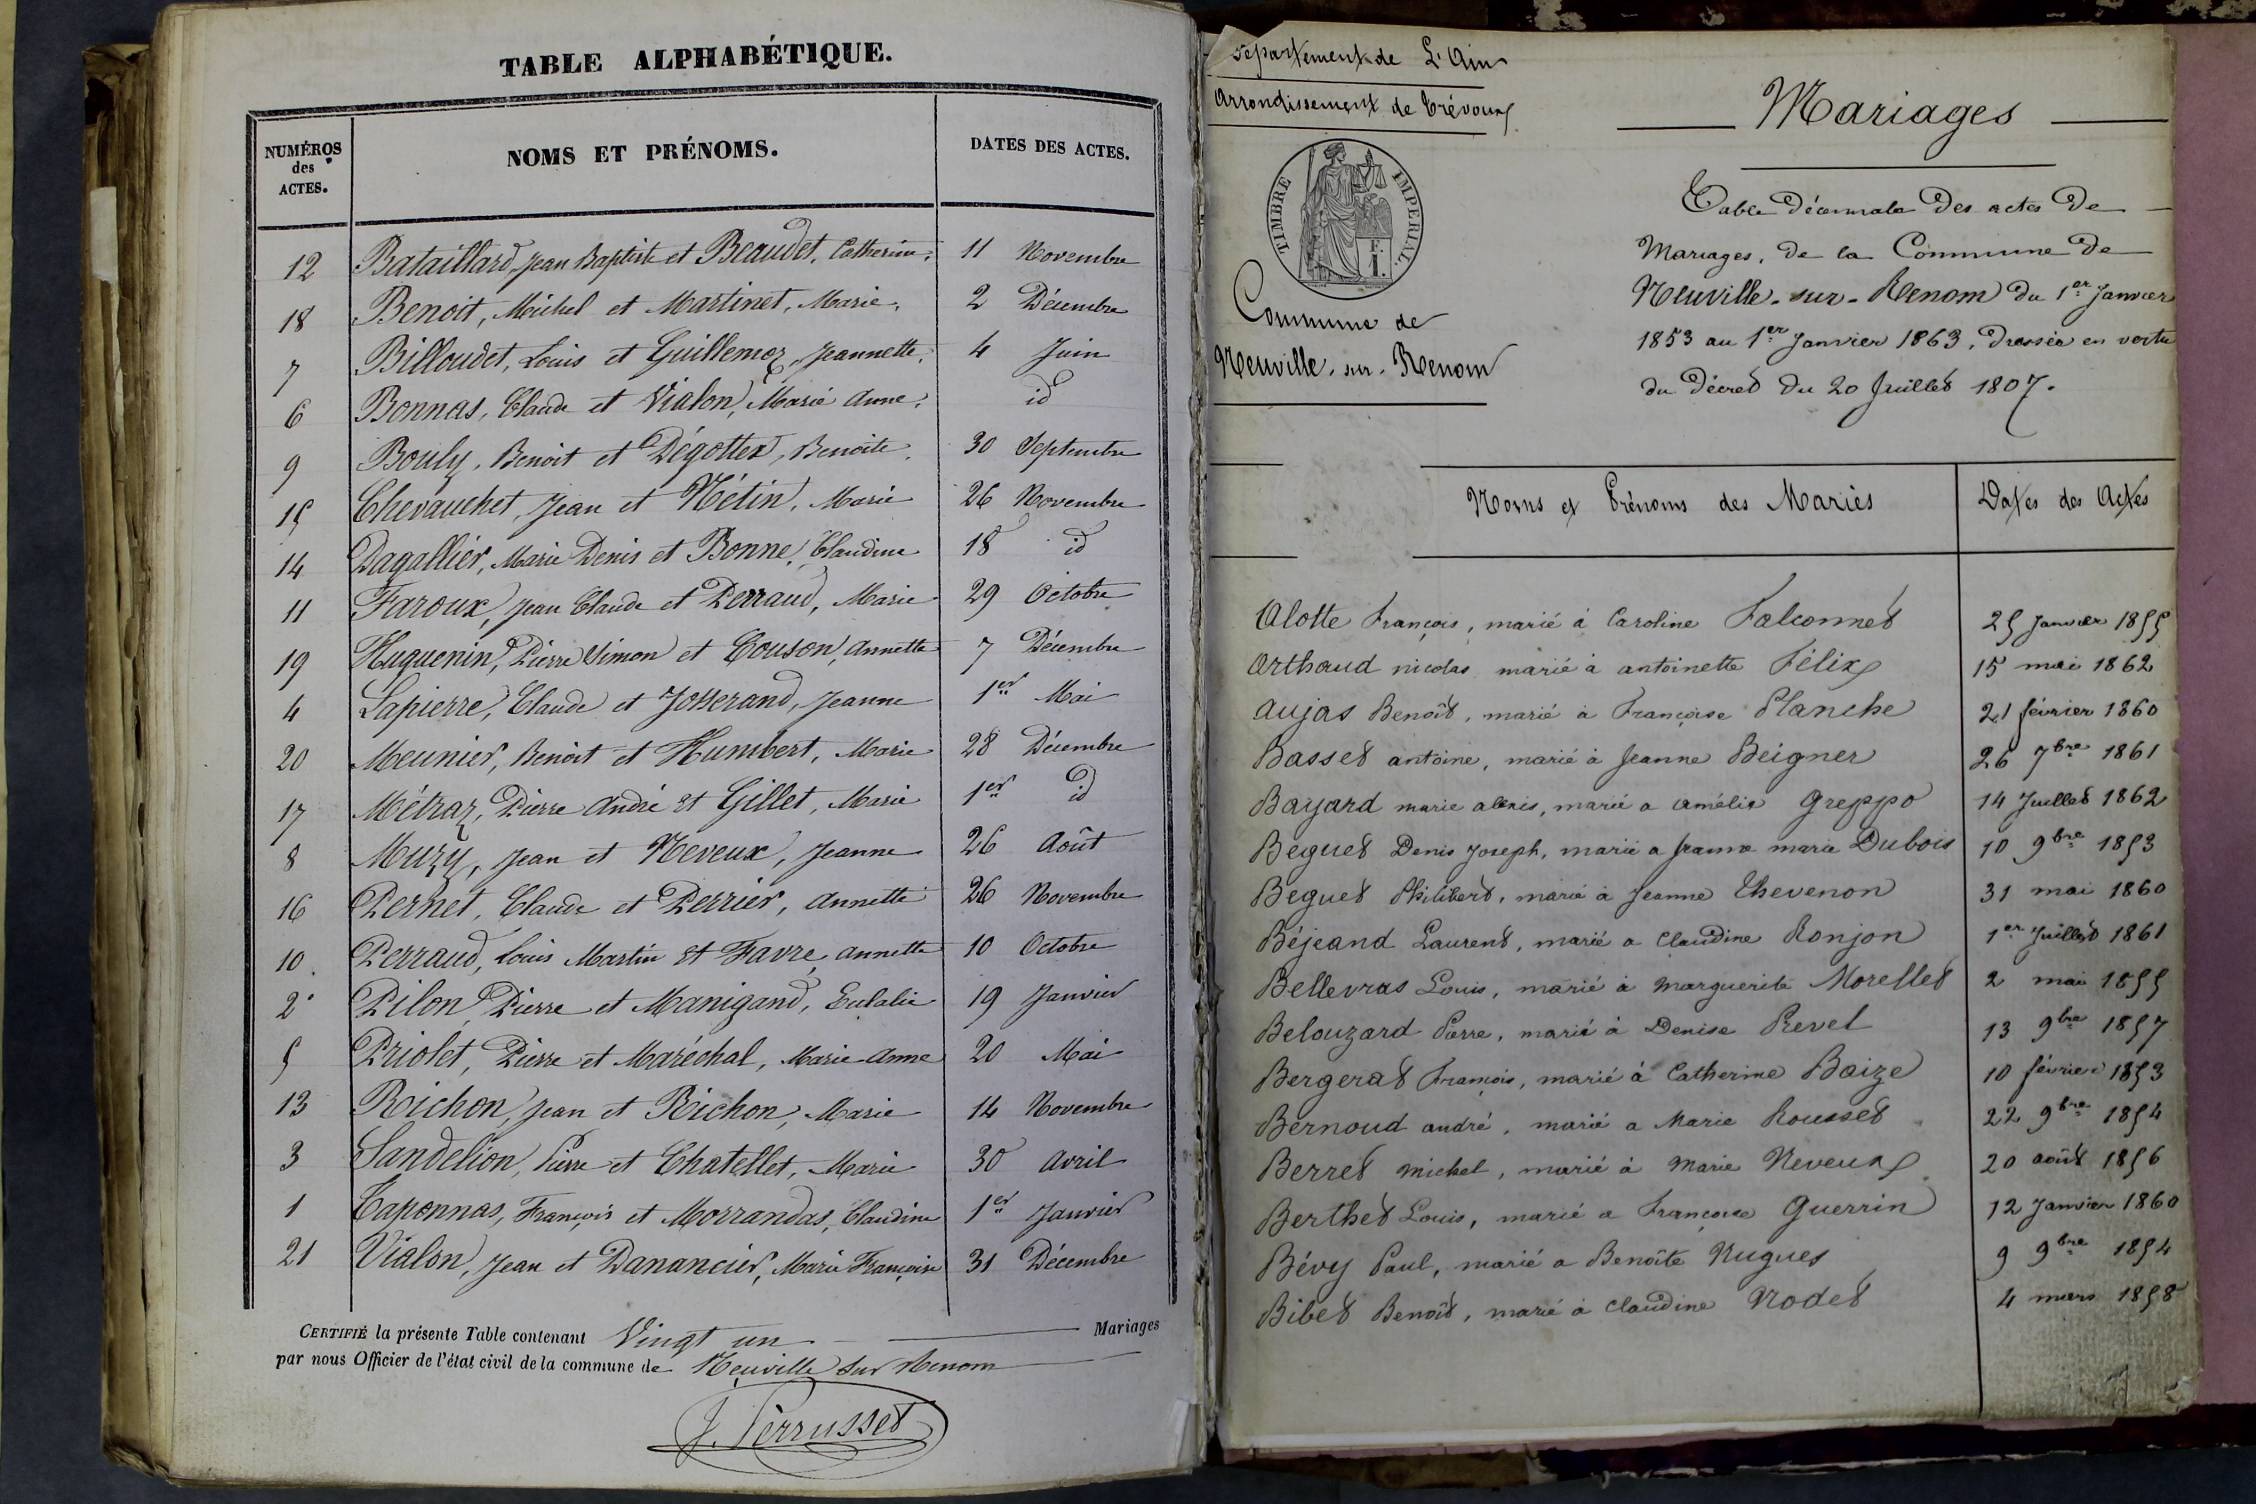 TABLE ALPHABÉTIQUE.
NUMÉROS des ACTES. NOMS ET PRÉNOMS. DATES DES ACTES.
12 Bataillard, Jean Baptiste et Beaudet, Catherine, 11 Novembre
18 Benoit, Michel et Martinet, Marie, 2 Décembre
7 Billoudet, Louis et Guillemoz, Jeannette, 4 Juin
6 Bonnas, Claude et Vialon, Marie Anne, id
9 Bouly, Benoit et Dégottex, Benoîte, 30 Septembre
15 Chevauchet, Jean et Nétin, Marie 26 Novembre
14 Dagallier, Marie Denis et Bonne, Claudine 18 id
11 Faroux, Jean Claude et Perraud, Marie 29 Octobre
19 Huguenin, Pierre Simon et Couson, Annette 7 Décembre
4 Lapierre, Claude et Josserand, Jeanne 1er Mai
20 Meunier, Benoit et Humbert, Marie 28 Décembre
17 Métraz, Pierre André et Gillet, Marie 1er id
8 Muzy, Jean et Neveux, Jeanne 26 Août
16 Pernet, Claude et Perrier, Annette 26 Novembre
10 Perraud, Louis Martin et Favre, Annette 10 Octobre
2 Pilon, Pierre et Manigand, Eulalie 19 Janvier
5 Priolet, Pierre et Maréchal, Marie Anne 20 Mai
13 Richon, Jean et Richon, Marie 14 Novembre
3 Sandelion, Pierre et Chatellet, Marie 30 Avril
1 Caponnas, François et Morrandas, Claudine 1er Janvier
21 Vialon, Jean et Danancier, Marie Françoise 31 Décembre
CERTIFIÉ la présente Table contenant Vingt un Mariages
par nous Officier de l'état civil de la commune de Neuville sur Renom
J. Perrusset
Département de L'Ain
Arrondissement de Trévoux
TIMBRE IMPÉRIAL.
F. I.
Commune de
Neuville-sur-Renom
Mariages
Table Décennale Des actes De
Mariages, De la Commune De
Neuville-sur-Renom Du 1er Janvier
1853 au 1er Janvier 1863, Dressée en vertu
du Décret Du 20 Juillet 1807.
Noms et Prénoms des Mariés Dates des Actes
Alotte François, marié à Caroline Falconnet 25 Janvier 1855
Arthaud nicolas marié à antoinette Félix 15 mai 1862
Aujas Benoît, marié à Françoise Planche 21 février 1860
Basset antoine, marié à Jeanne Beigner 26 7bre 1861
Bayard marie alexis, marié a amélie Greppo 14 Juillet 1862
Beguet Denis Joseph, marié a Jeanne marie Dubois 10 9bre 1853
Beguet Philibert, marié à Jeanne Thevenon 31 mai 1860
Béjeand Laurent, marié a Claudine Ronjon 1er Juillet 1861
Bellevras Louis, marié à Marguerite Morellet 2 mai 1855
Belouzard Pierre, marié à Denise Prevel 13 9bre 1857
Bergerat François, marié à Catherine Baize 10 février 1853
Bernoud andré, marié a Marie Rousset 22 9bre 1854
Berret michel, marié à Marie Neveux 20 août 1856
Berthet Louis, marié a Françoise Guerrin 12 Janvier 1860
Bévy Paul, marié a Benoîte Nugues 9 9bre 1854
Bibet Benoît, marié à Claudine Nodet 4 mars 1858